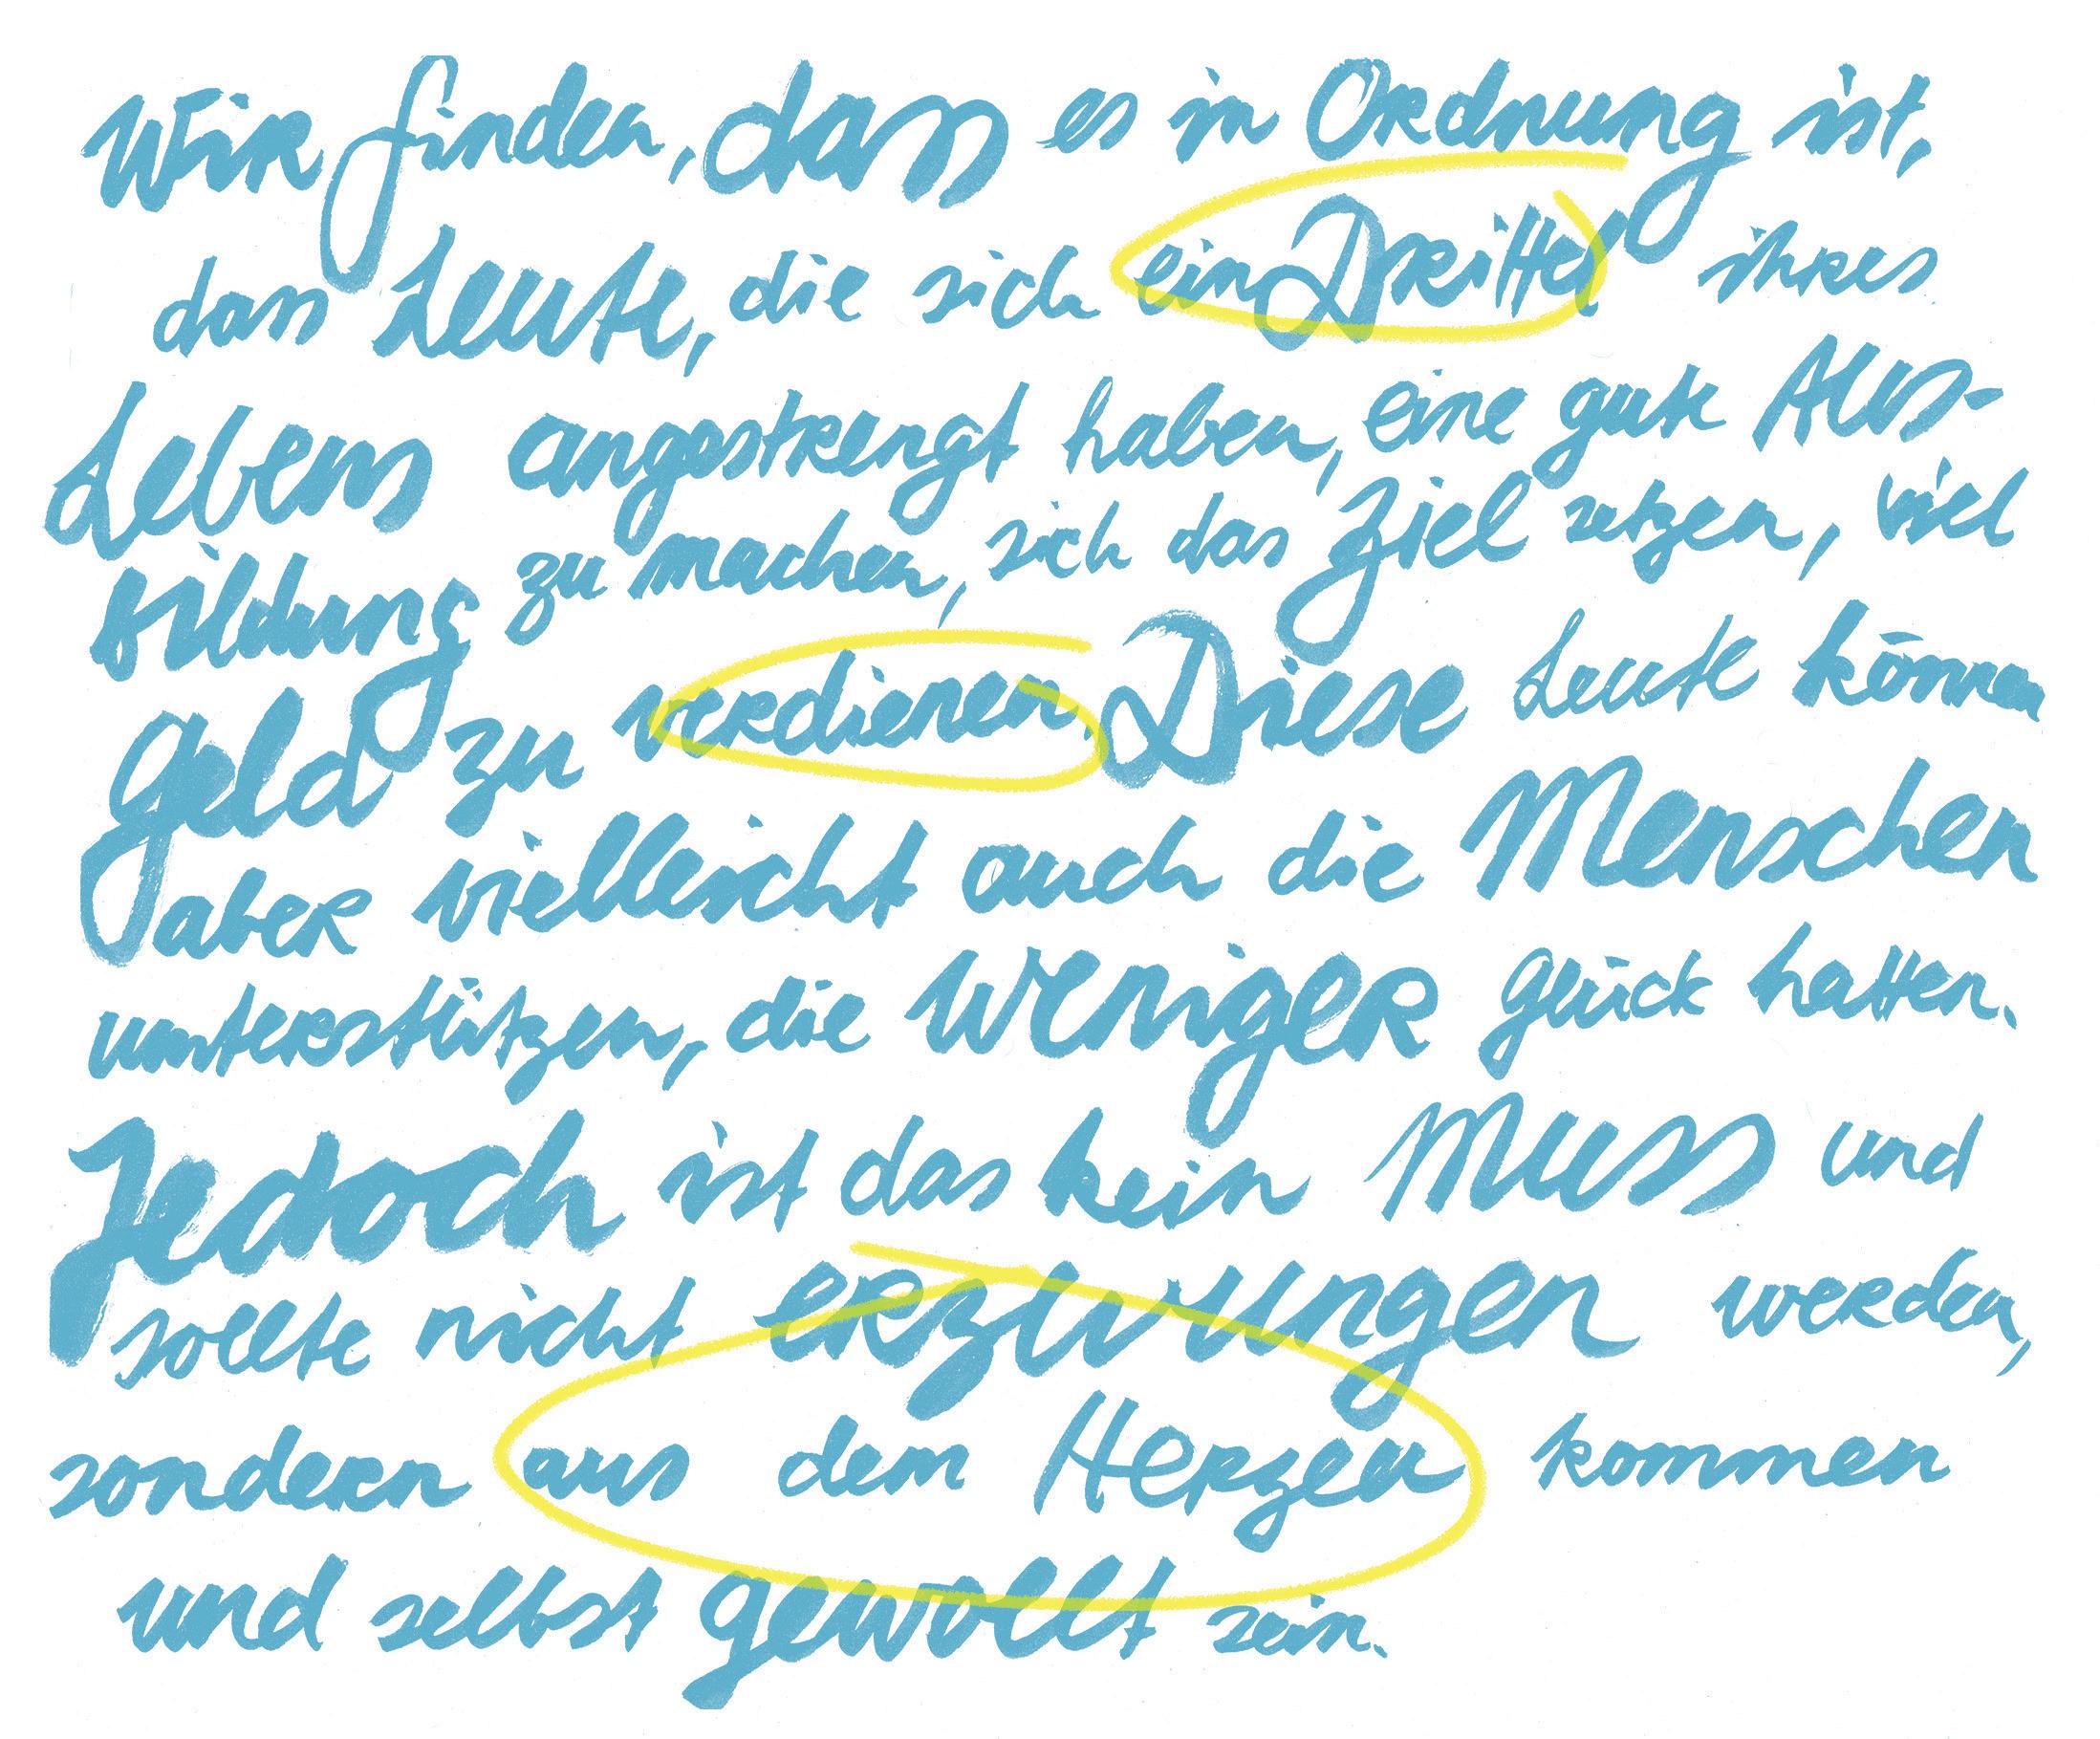 Wir finden, dass es in Ordnung ist,
dass Leute, die sich ein Drittel ihres
Lebens angestrengt haben, eine gute Aus-
bildung zu machen, sich das Ziel setzen, viel
Geld zu verdienen. Diese Leute können
aber vielleicht auch die Menschen
unterstützen, die weniger Glück hatten.
Jedoch ist das kein Muss und
sollte nicht erzwungen werden,
sondern aus dem Herzen kommen
und selbst gewollt sein.